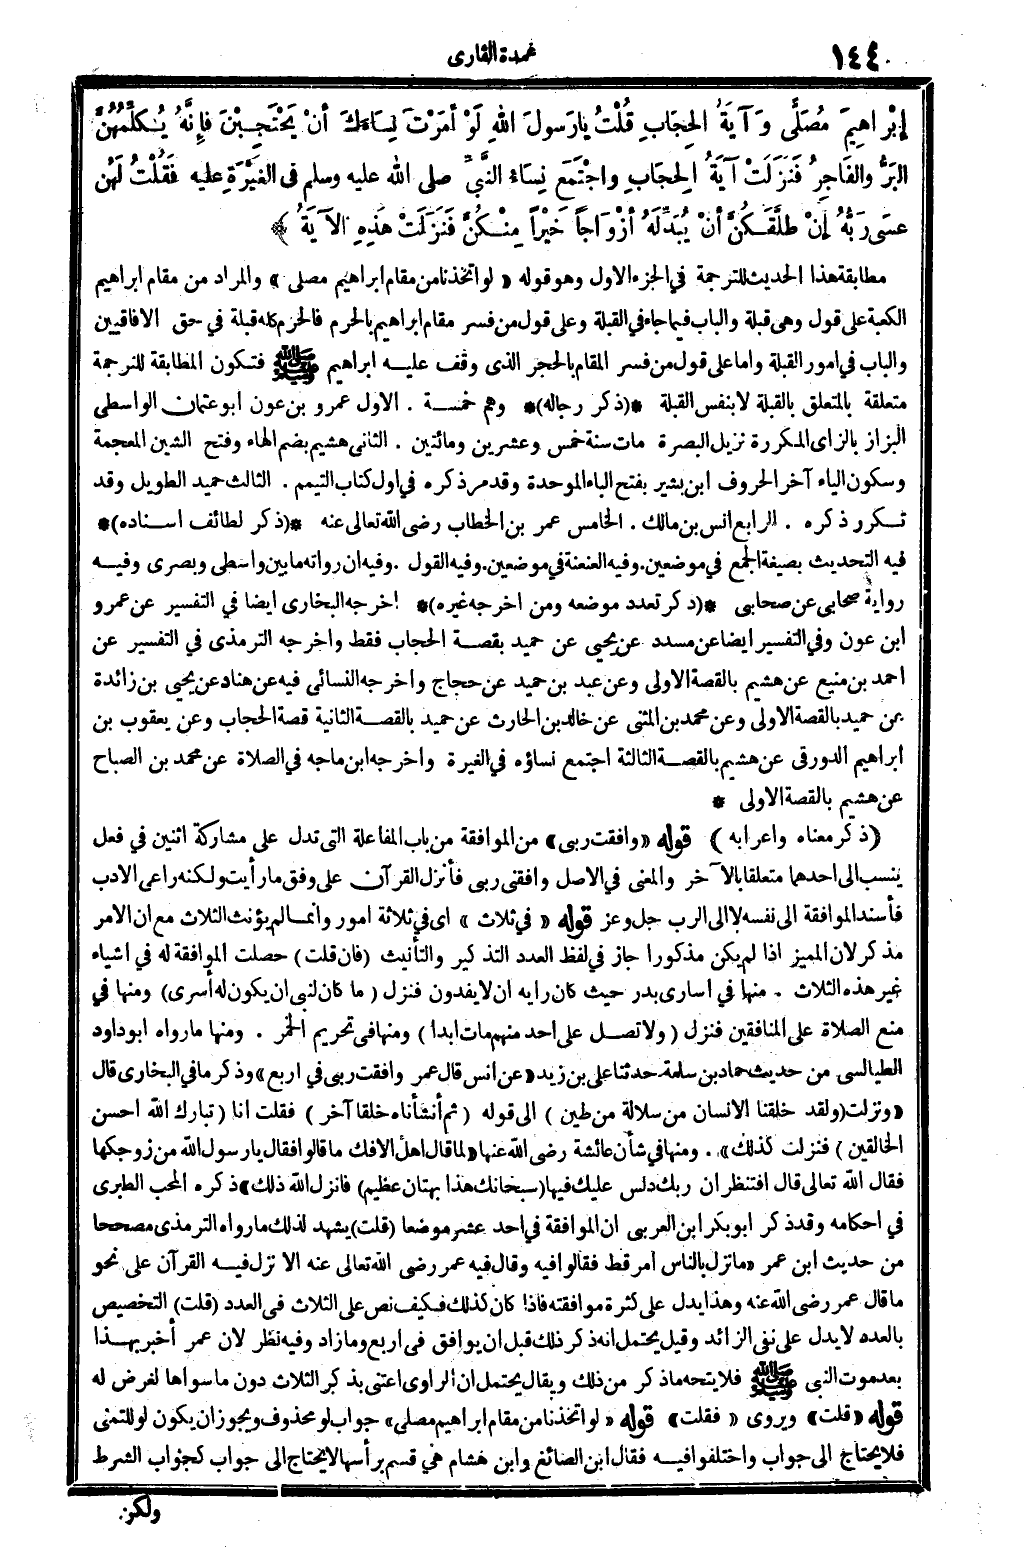 ١٤٤
عمدة القارى
إِبْرَاهِيمَ مُصَلًّى وَآيَةُ الْحِجَابِ قُلْتُ يَارَسُولَ اللهِ لَوْ أَمَرْتَ نِسَاءَكَ أَنْ يَحْتَجِبْنَ فَإِنَّهُ يُكَلِّمُهُنَّ
البَرُّ وَالفَاجِرُ فَنَزَلَتْ آيَةُ الْحِجَابِ وَاجْتَمَعَ نِسَاءُ النَّبِيِّ صلى الله عليه وسلم فى الغَيْرَةِ عليه فَقُلْتُ لَهُنَّ
عَسَى رَبُّهُ إِنْ طَلَّقَكُنَّ أَنْ يُبَدِّلَهُ أَزْوَاجاً خَيْراً مِنْكُنَّ فَنَزَلَتْ هَذِهِ الآيَةُ ﴾
مطابقة هذا الحديث للترجمة في الجزء الاول وهو قوله «لو اتخذنا من مقام ابراهيم مصلى» والمراد من مقام ابراهيم
الكعبة على قول وهى قبلة والباب فيما جاء في القبلة وعلى قول من فسر مقام ابراهيم بالحرم فالحرم كله قبلة في حق الافاقيين
والباب في امور القبلة واما على قول من فسر المقام بالحجر الذى وقف عليه ابراهيم ﷺ فتكون المطابقة للترجمة
متعلقة بالمتعلق بالقبلة لا بنفس القبلة *(ذكر رجاله)* وهم خمسة . الاول عمرو بن عون ابو عثمان الواسطى
البزاز بالزاى المكررة نزيل البصرة مات سنة خمس وعشرين ومائتين . الثانى هشيم بضم الهاء وفتح الشين المعجمة
وسكون الياء آخر الحروف ابن بشير بفتح الباء الموحدة وقد مر ذكره في اول كتاب التيمم . الثالث حميد الطويل وقد
تكرر ذكره . الرابع انس بن مالك . الخامس عمر بن الخطاب رضى الله تعالى عنه *(ذكر لطائف اسناده)*
فيه التحديث بصيغة الجمع في موضعين. وفيه العنعنة في موضعين. وفيه القول . وفيه ان رواته ما بين واسطى وبصرى وفيه
رواية صحابى عن صحابى *(ذكر تعدد موضعه ومن اخرجه غيره)* اخرجه البخارى ايضا في التفسير عن عمرو
ابن عون وفي التفسير ايضا عن مسدد عن يحيى عن حميد بقصة الحجاب فقط واخرجه الترمذى في التفسير عن
احمد بن منيع عن هشيم بالقصة الاولى وعن عبد بن حميد عن حجاج واخرجه النسائى فيه عن هناد عن يحيى بن زائدة
عن حميد بالقصة الاولى وعن محمد بن المثنى عن خالد بن الحارث عن حميد بالقصة الثانية قصة الحجاب وعن يعقوب بن
ابراهيم الدورقى عن هشيم بالقصة الثالثة اجتمع نساؤه في الغيرة واخرجه ابن ماجه في الصلاة عن محمد بن الصباح
عن هشيم بالقصة الاولى *
(ذكر معناه واعرابه) قوله «وافقت ربى» من الموافقة من باب المفاعلة التى تدل على مشاركة اثنين في فعل
ينسب الى احدهما متعلقا بالآخر والمعنى في الاصل وافقنى ربى فأنزل القرآن على وفق ما رأيت ولكنه راعى الادب
فأسند الموافقة الى نفسه لا الى الرب جل وعز قوله «في ثلاث» اى في ثلاثة امور وانما لم يؤنث الثلاث مع ان الامر
مذكر لان المميز اذا لم يكن مذكورا جاز في لفظ العدد التذكير والتأنيث (فان قلت) حصلت الموافقة له في اشياء
غير هذه الثلاث . منها في اسارى بدر حيث كان رايه ان لا يفدون فنزل (ما كان لنبى ان يكون له أسرى) ومنها في
منع الصلاة على المنافقين فنزل (ولا تصل على احد منهم مات ابدا) ومنها فى تحريم الخمر . ومنها ما رواه ابو داود
الطيالسى من حديث حماد بن سلمة حدثنا على بن زيد «عن انس قال عمر وافقت ربى في اربع» وذكر ما في البخارى قال
«ونزلت (ولقد خلقنا الانسان من سلالة من طين) الى قوله (ثم أنشأناه خلقا آخر) فقلت انا (تبارك الله احسن
الخالقين) فنزلت كذلك». ومنها في شأن عائشة رضى الله عنها «لما قال اهل الافك ما قالوا فقال يا رسول الله من زوجكها
فقال الله تعالى قال افتنظر ان ربك دلس عليك فيها (سبحانك هذا بهتان عظيم) فانزل الله ذلك» ذكره المحب الطبرى
في احكامه وقد ذكر ابو بكر ابن العربى ان الموافقة في احد عشر موضعا (قلت) يشهد لذلك ما رواه الترمذى مصححا
من حديث ابن عمر «ما نزل بالناس أمر قط فقالوا فيه وقال فيه عمر رضى الله تعالى عنه الا نزل فيه القرآن على نحو
ما قال عمر رضى الله عنه وهذا يدل على كثرة موافقته فاذا كان كذلك فكيف نص على الثلاث فى العدد (قلت) التخصيص
بالعدد لا يدل على نفى الزائد وقيل يحتمل انه ذكر ذلك قبل ان يوافق فى اربع وما زاد وفيه نظر لان عمر أخبر بهذا
بعد موت النبى ﷺ فلا يتجه ما ذكر من ذلك ويقال يحتمل ان الراوى اعتنى بذكر الثلاث دون ما سواها لغرض له
قوله «قلت» ويروى «فقلت» قوله «لو اتخذنا من مقام ابراهيم مصلى» جواب لو محذوف ويجوز ان يكون لو للتمنى
فلا يحتاج الى جواب واختلفوا فيه فقال ابن الصائغ وابن هشام هي قسم برأسها لا يحتاج الى جواب كجواب الشرط
ولكن